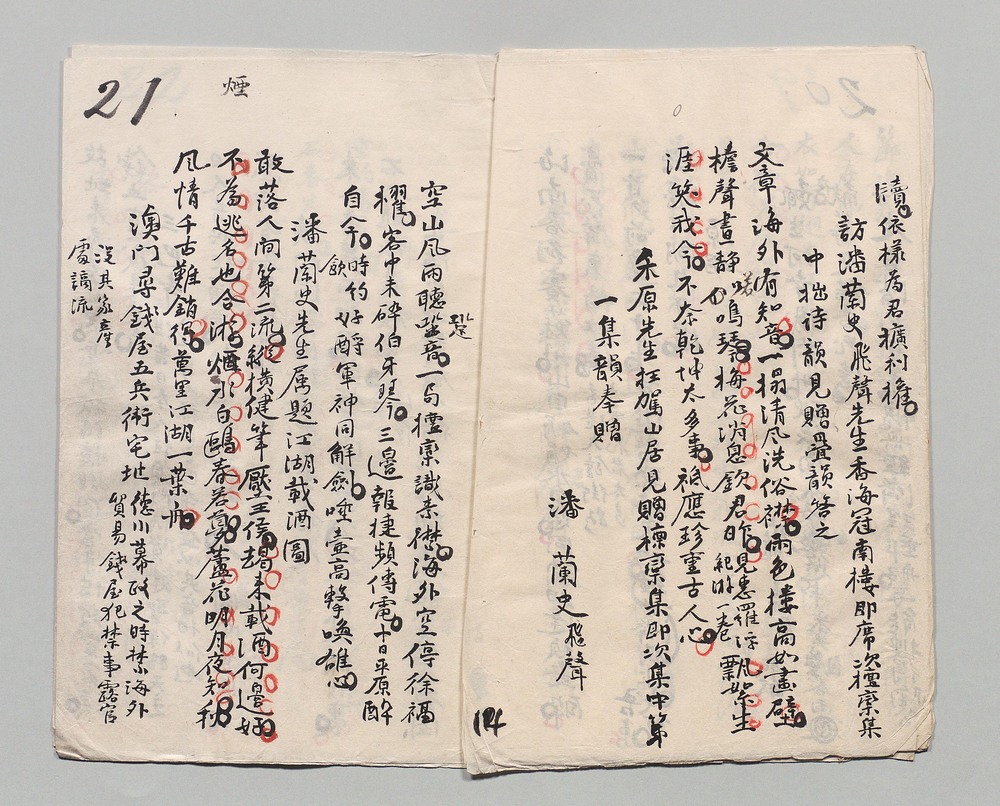 牘依樣為君擴利權
訪潘蘭史飛聲先生香海冠南樓即席次檀欒集
中拙詩韻見贈疊韻答之
文章海外有知音一榻清風洗俗襟雨色樓高如畫壁
檐聲晝静鳴琴梅花消息欽君日昨見惠羅浮紀游一卷飄然生
涯笑我今不奈乾坤太多事祗應珍重古人心
朱原先生枉駕山居見贈檀欒集即次集中第
一集韻奉贈
潘蘭史飛聲
184
空山風雨聽跫音一局檀欒識素襟海外空停徐福
櫂客中未碎伯牙琴三邊報捷頻傳電十日平原醉
自今時約飲好酹軍神同解劍唾壺高擊喚雄心
潘蘭史先生属題江湖載酒圖
敢落人間第二流縱横健筆壓王侯朅来載酒何邊好
不為逃名也合游煙水白鷗春若夢蘆花明月夜知秋
風情千古難銷得萬里江湖一葉舟
澳门尋錢屋五兵衛宅址德川幕政之時禁海外
貿易錢屋犯禁事露官
没其家產
處謫流
煙
21